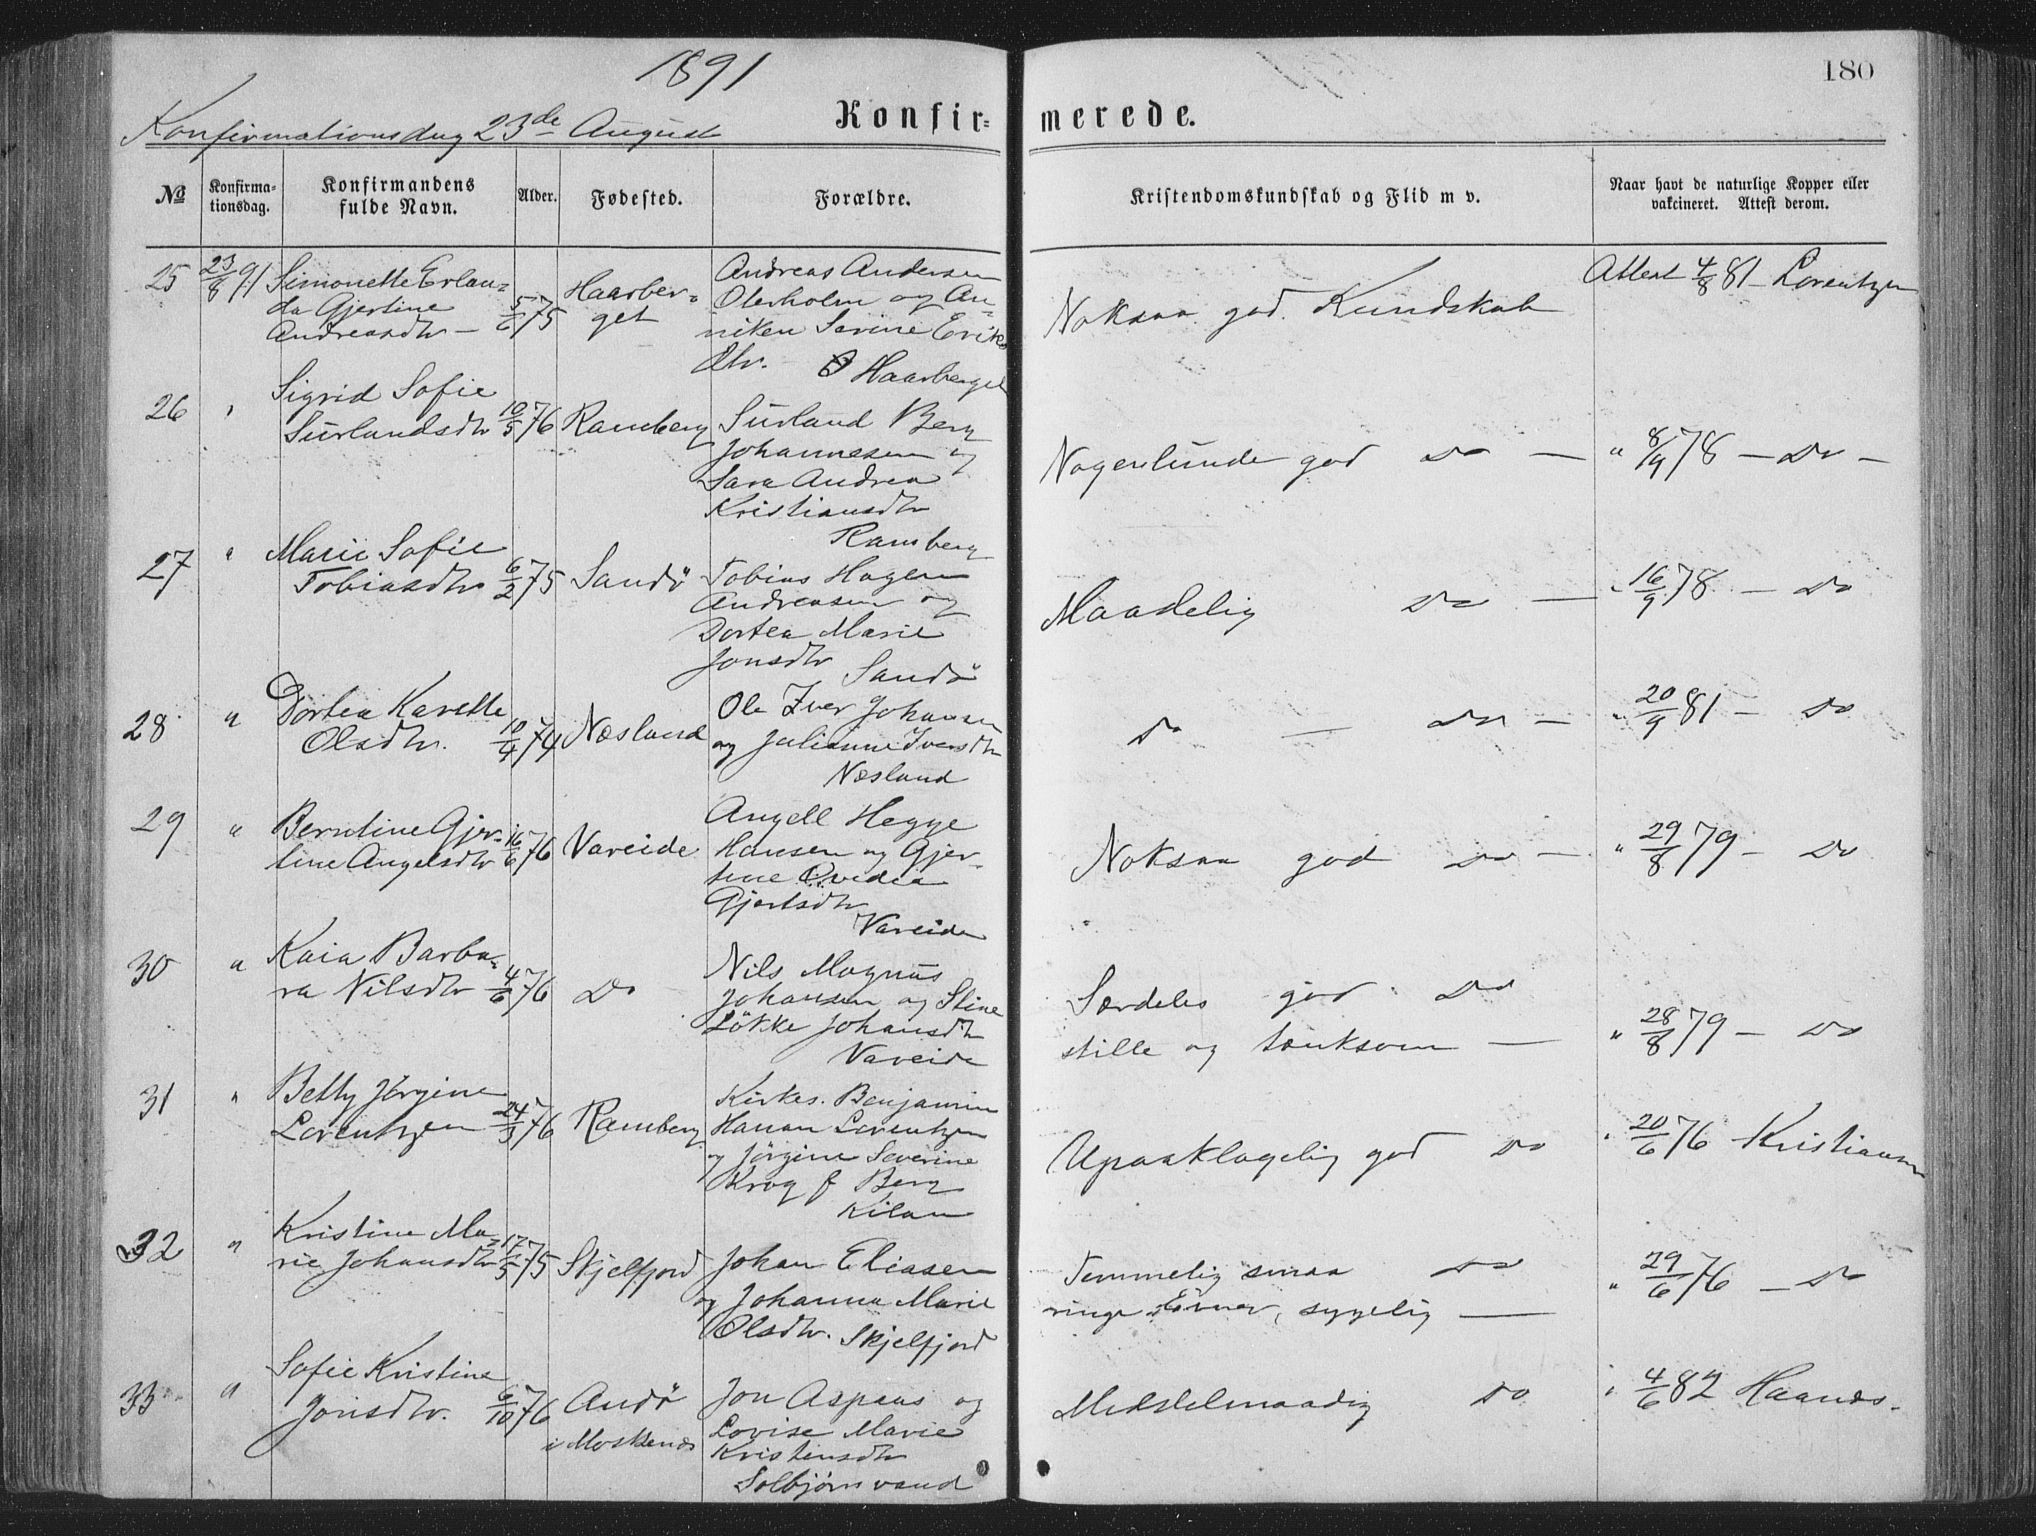 1891
180
Konfirmationsdag 23de August
Konfir=
merede.
No
Konfirma=
tionsdag.
Konfirmandens
fulde Navn.
Alder.
Fødested.
Forældre.
Kristendomskundskab og Flid m v.
Naar havt de naturlige Kopper eller
vakcineret. Attest derom.
25 23/8 91 Simonette Erlan=
da Gjertine
Andreasdtr — 5/6 75
Haarber=
get
Andreas Andersen
Oterholm og An=
niken Serine Eriks
dtr. Haarberget
Noksaa god Kundskab
Attest 4/8 81 — Lorentzen
26 " Sigrid Sofie
Siurlandsdtr 10/5 76 Ramberg
Siurland Berg
Johannesen og
Sara Andrea
Kristiansdtr
Ramberg
Nogenlunde god Do —
" 8/9 78 — Do —
27 " Marie Sofie
Tobiasdtr 6/2 75 Sandö
Tobias Hagen
Andreasen og
Dortea Marie
Jonsdtr
Sandö
Maadelig Do —
" 16/9 78 — Do
28 " Dortea Karette
Olsdtr. 10/4 74 Næsland
Ole Iver Johansen
og Julianne Iversdtr
Næsland
Do — Do —
" 20/9 81 — Do
29 " Berntine Gjer=
tine Angelsdtr 16/6 76 Vareide
Angell Hegge
Hansen og Gjer=
tine Ovedia
Gjertsdtr
Vareide
Noksaa god Do —
" 29/8 79 — Do
30 " Kaia Barba=
ra Nilsdtr 4/6 76 Do
Nils Magnus
Johansen og Stine
Lökke Johansdtr
Vareide
Særdeles god Do
stille og tænksom —
" 28/8 79 — Do
31 " Betty Jörgine
Lorentzen 24/3 76 Ramberg
Kirkes. Benjamin
Hanan Lorentzen
og Jörgine Severine
Krog f Berg
Kilan
Upaaklagelig god Do
" 20/6 76 Kristiansen
32 " Kristine Ma=
rie Johansdtr 17/5 75 Skjelfjord
Johan Eliasen
og Johanna Marie
Olsdtr. Skjelfjord
Temmelig smaa Do
ringe Evner, sygelig —
" 29/6 76 — Do
33 " Sofie Kristine
Jonsdtr. 6/10 76 Andö
i Moskenæs
Jon Aspaas og
Lovise Marie
Kristensdtr
Solbjörnvand
Middelmaadig Do
" 4/6 82 Haands.